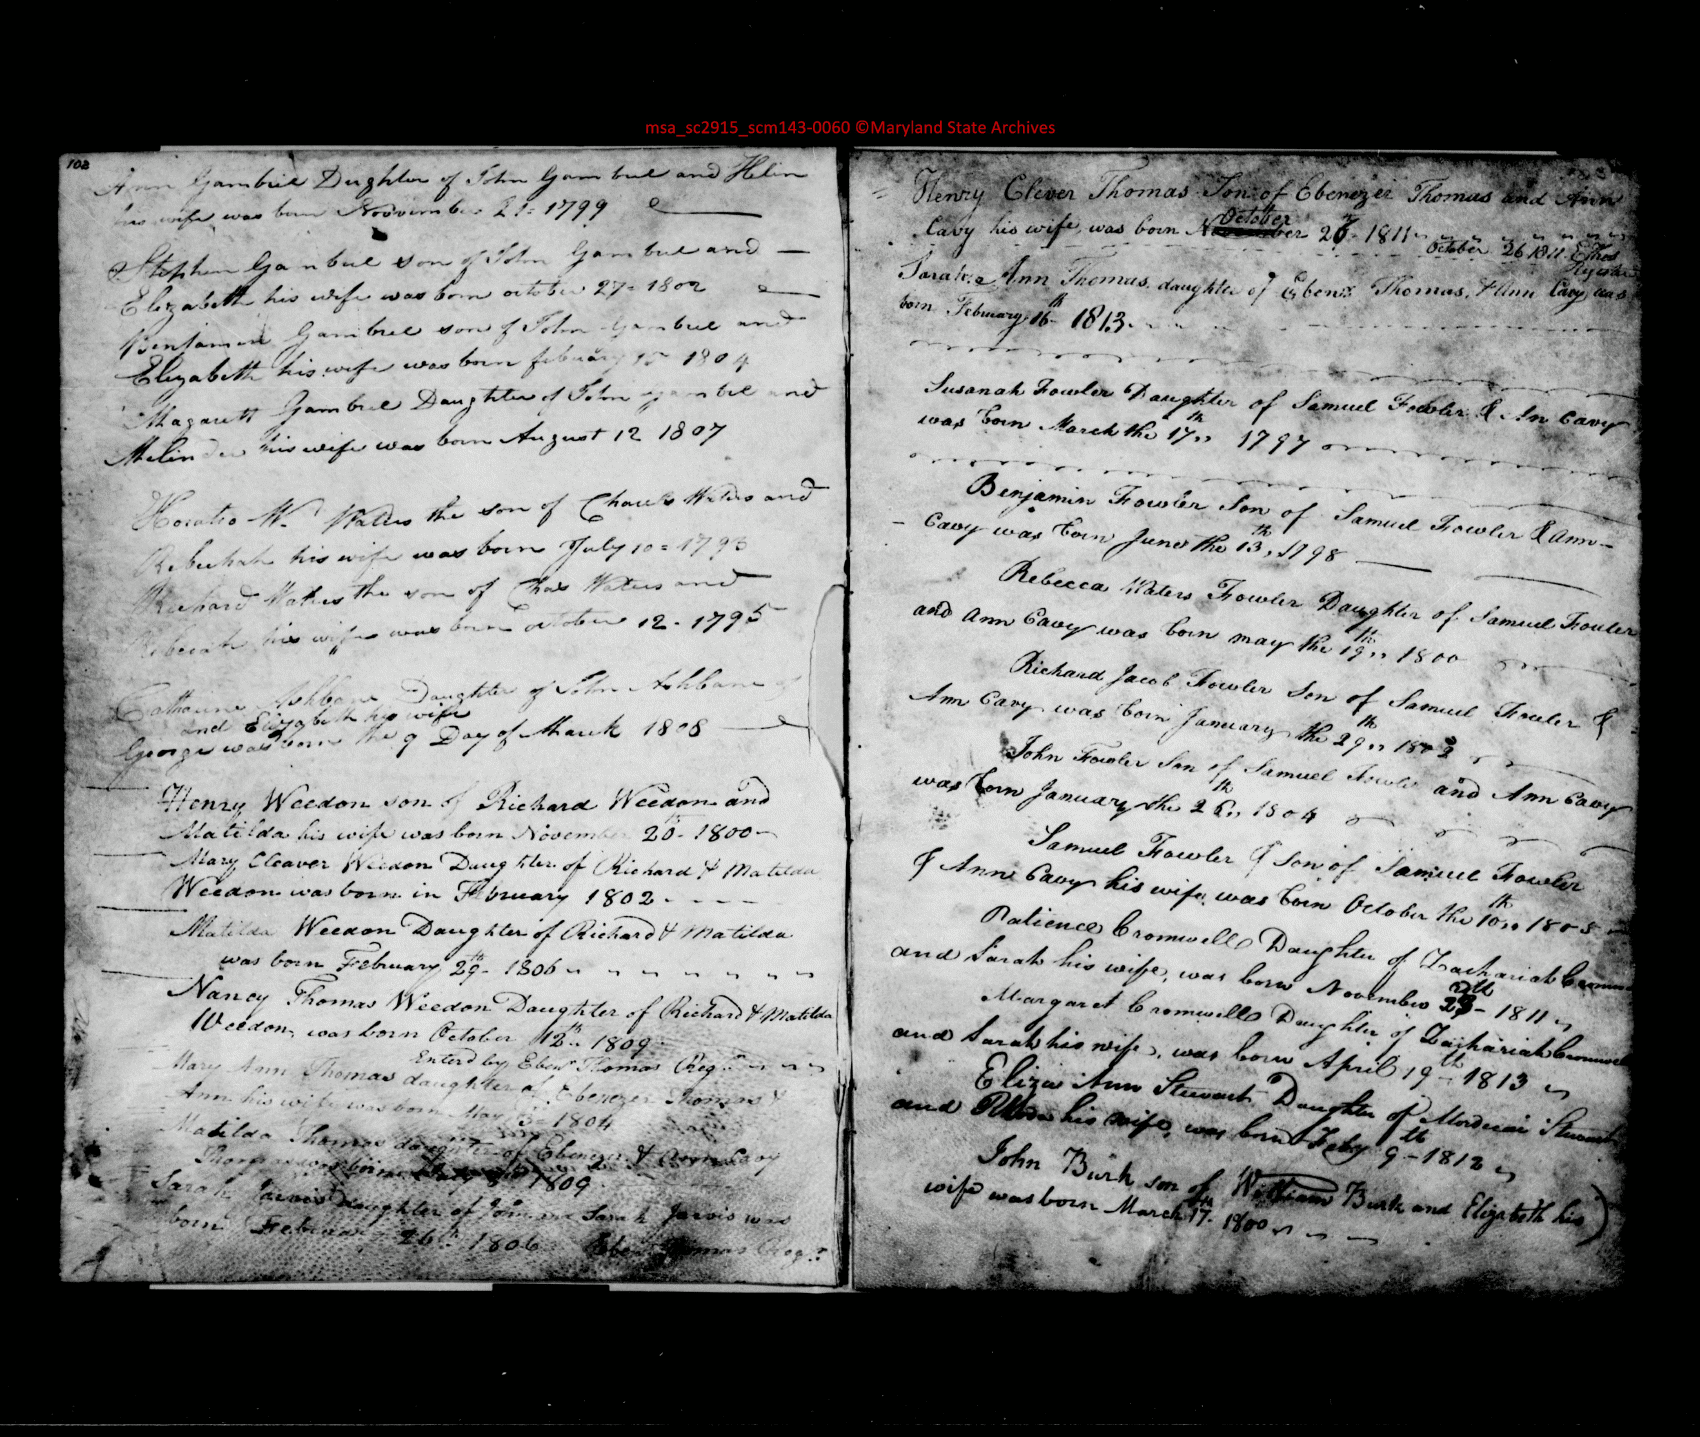 msa_sc2915_scm143-0060 ©Maryland State Archives
102
Ann Gambriel Dughter of John Gambriel and Helin
his wife was born Noovember 21 = 1799
Stephen Gambriel son of John Gambriel and —
Elizabeth his wife was born october 27 - 1802
Benjamin Gambriel son of John Gambriel and
Elizabeth his wife was born february 15 - 1804
Magarett Gambriel Daughter of John Gambriel and
Melinder his wife was born August 12 1807
Horatio W. Waters the son of Charels Waters and
Rebeckah his wife was born July 10 = 1793
Richard Waters the son of Chas Waters and
Rebecah his wife was born october 12 - 1795
Catharine Ashbane Daughter of John Ashbane of
and Elizabeth his wife
George was born the 9 Day of March 1808
Henry Weedon son of Richard Weedon and
Matilda his wife was born November 20th - 1800
Mary Cleaver Weedon Daughter of Richard & Matilda
Weedon was born in February 1802 - - - -
Matilda Weedon Daughter of Richard & Matilda
was born February 29th - 1806
Nancy Thomas Weedon Daughter of Richard & Matilda
Weedon, was born October 12th 1809
Enterd by Eben Thomas Regr
Mary Ann Thomas daughter of Ebenezer Thomas &
Ann his wife was born May 1804
Matilda Thomas daughter of Ebenezer & Ann Cavy
Thomas was born 1809
Sarah Jarvis daughter of John and Sarah Jarvis was
born February 26th 1806 Eben Thomas Regr
Henry Clever Thomas Son of Ebenezer Thomas and Ann
October
Cavy his wife, was born November 26th - 1811
October 26 1811 E Thos
Register
Sarah Ann Thomas daughter of Ebenr Thomas, & Ann Cavy was
born February 16th - 1813
Susanah Fowler Daughter of Samuel Fowler & An Cavy
was born March the 17th 1797
Benjamin Fowler Son of Samuel Fowler & Ann
Cavy was born June the 13th 1798
Rebecca Waters Fowler Daughter of Samuel Fowler
and Ann Cavy was born may the 19th 1800
Richard Jacob Fowler Son of Samuel Fowler &
Ann Cavy was born January the 29th 1802
John Fowler Son of Samuel Fowler and Ann Cavy
was born January the 26th 1804
Samuel Fowler Son of Samuel Fowler
& Ann Cavy his wife was born October the 10th 1805
Patience Cromwell Daughter of Zachariah Cromwell
and Sarah his wife, was born November 23th - 1811
Margaret Cromwell Daughter of Zachariah Cromwell
and Sarah his wife, was born April 19th - 1813
Eliza Ann Stewart Daughter of Mordecai Stewart
and his wife, was born Feby 9th - 1812
John Burk son of William Burk and Elizabeth his
wife was born March 17th 1800